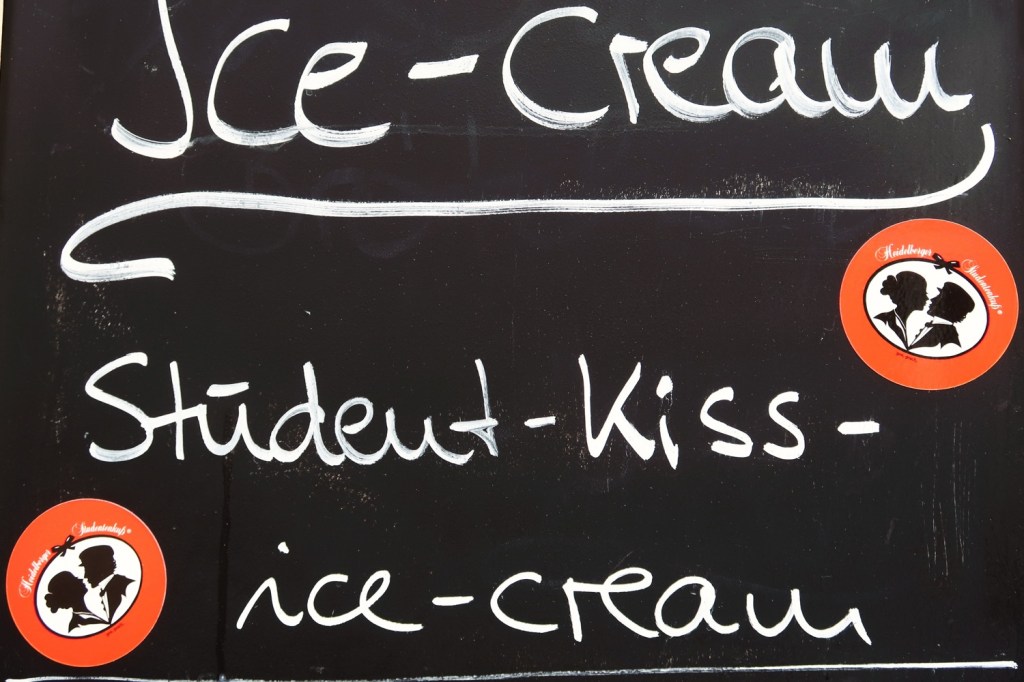 Ice-Cream
Heidelberger Studentenkuß®
Student-Kiss-
Heidelberger Studentenkuß®
ice-cream